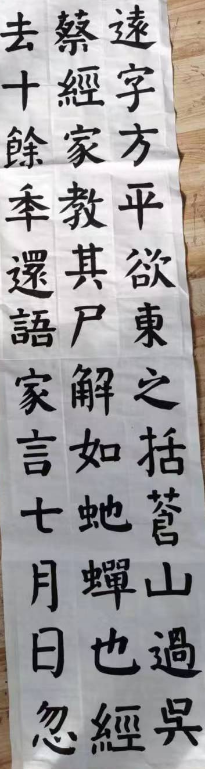 遠字方平欲東之括蒼山過吳
蔡經家教其尸解如虵蟬也經
去十餘秊還語家言七月日忽